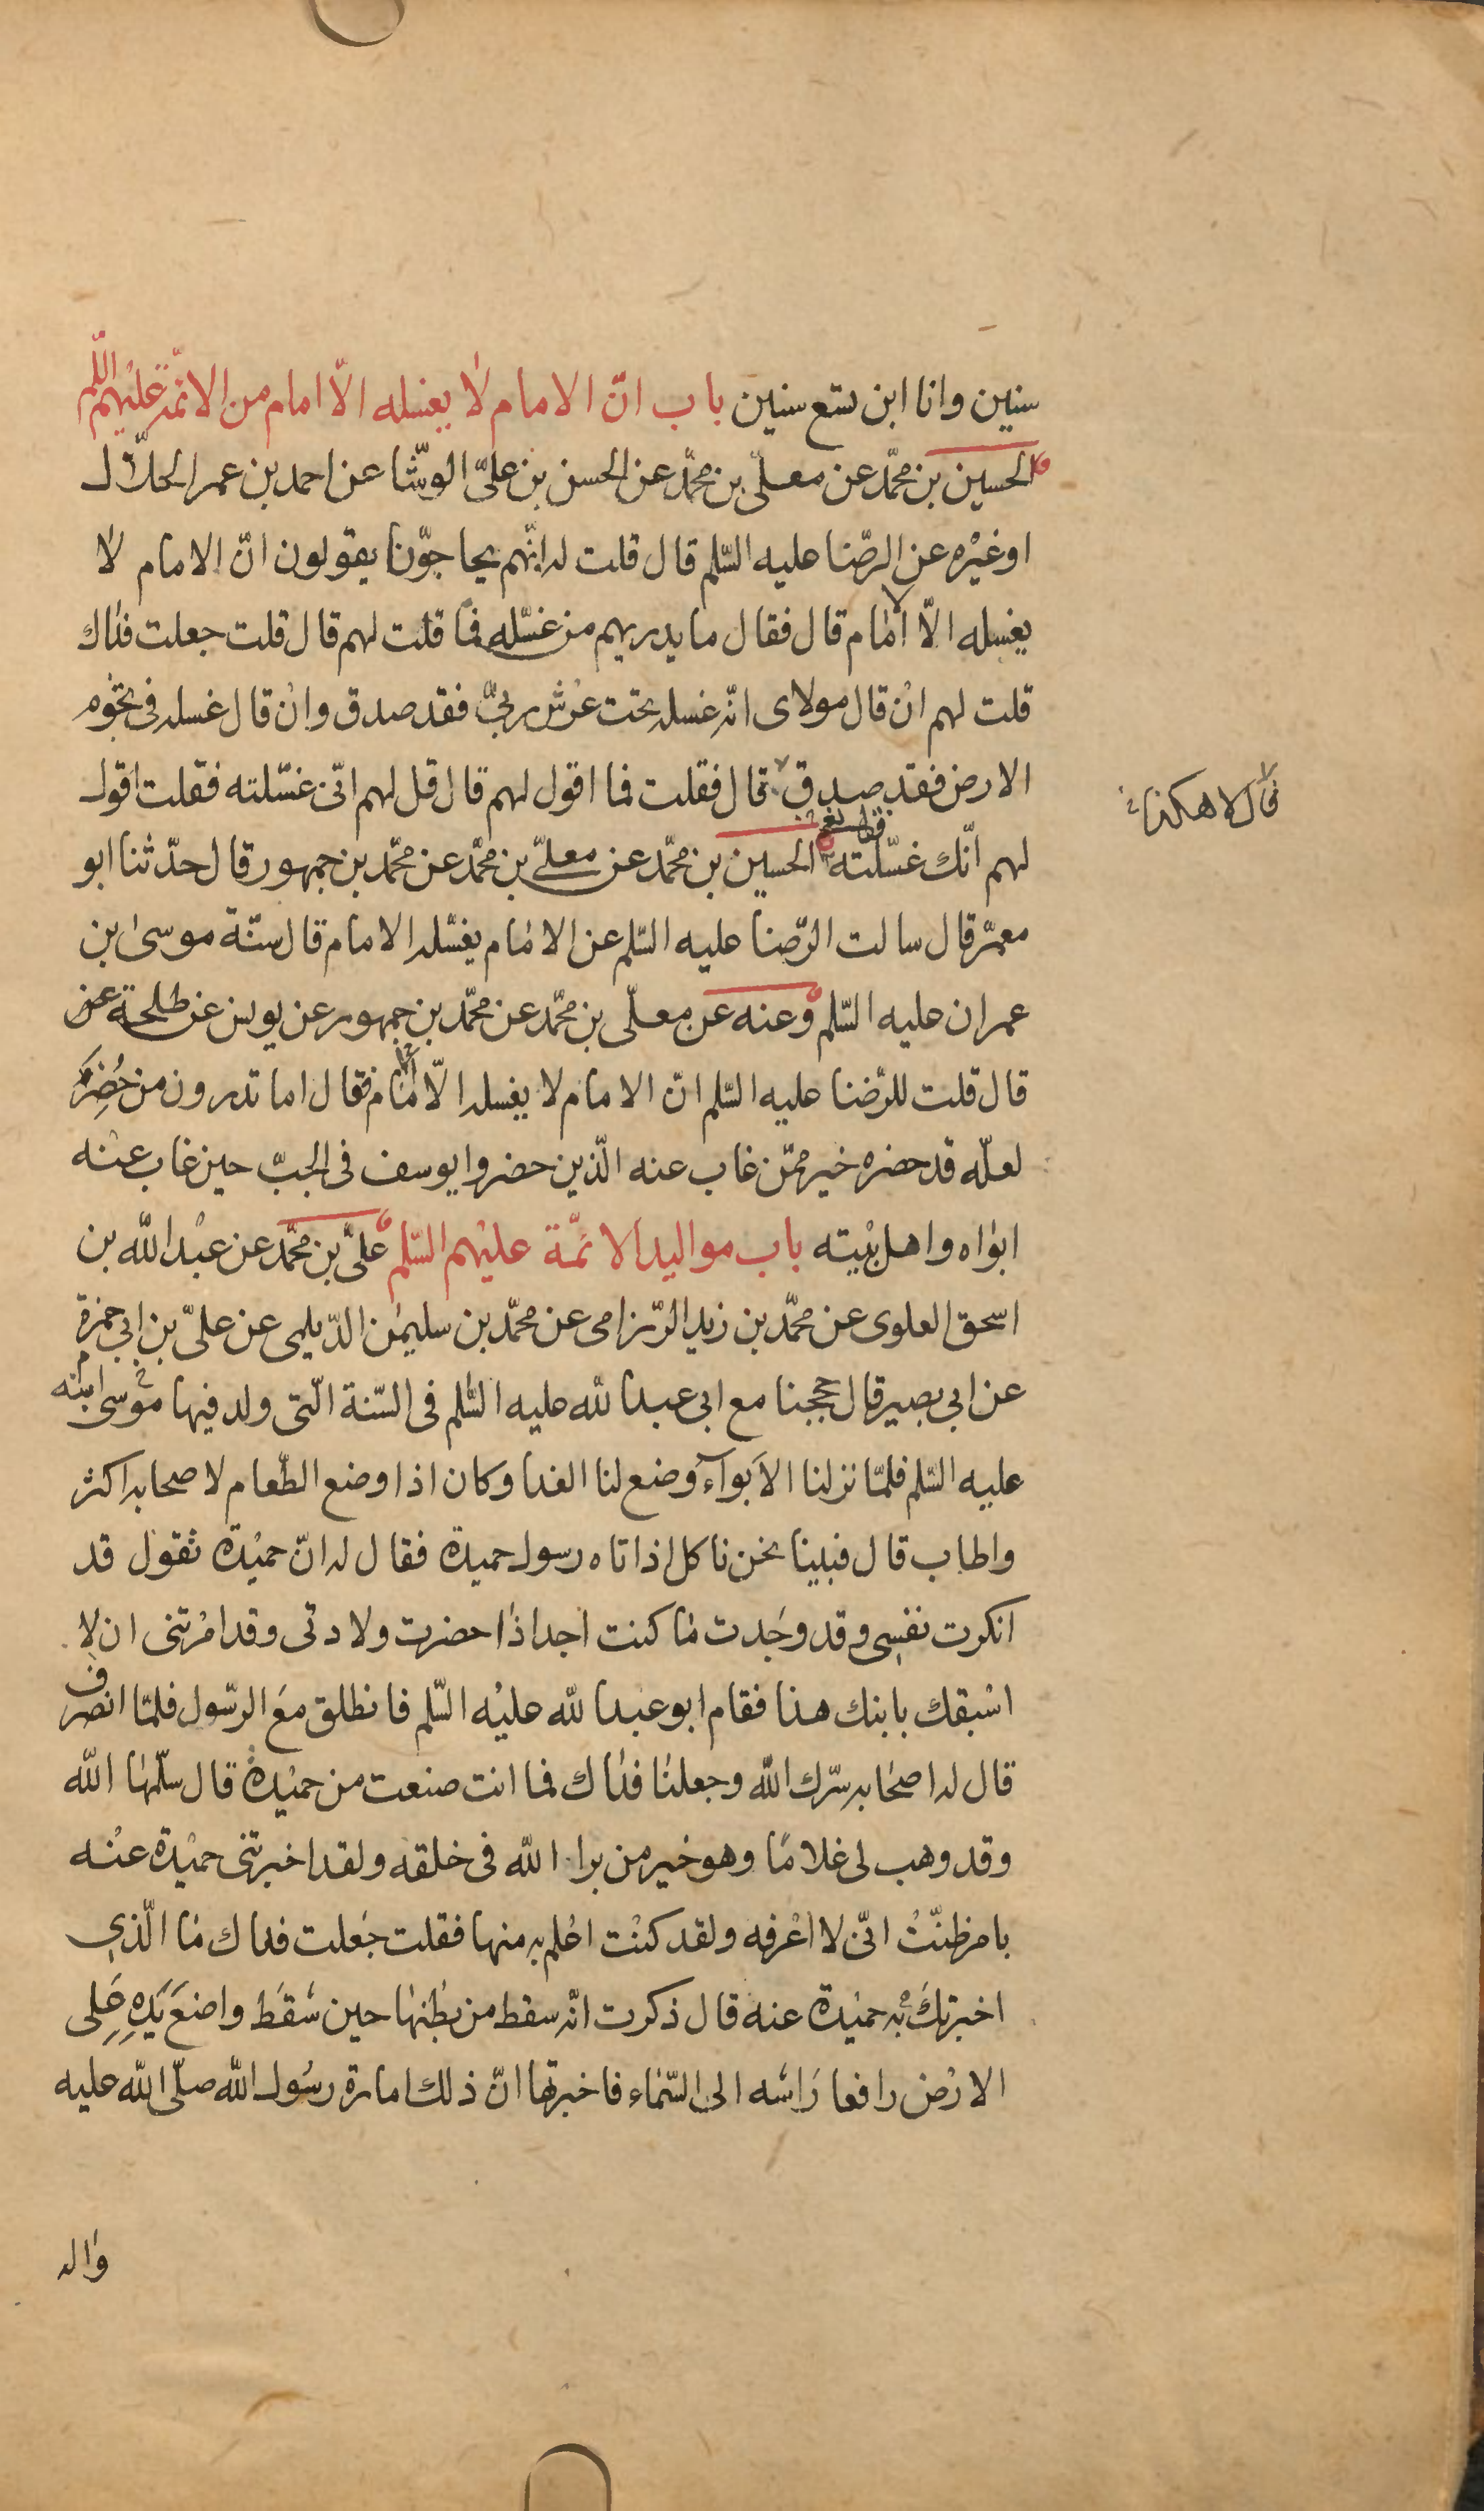 سنين وانا ابن تسع سنين باب انّ الامام لا يغسله الّا امام من الائمّة عليهم السّلم
الحسين بن محمّد عن معلّى بن محمّد عن الحسن بن علىّ الوشّا عن احمد بن عمر الحلّال
او غيره عن الرّضا عليه السّلم قال قلت له انّهم يحاجّونا يقولون انّ الامام لا
يغسله الّا امام قال فقال ما يدريهم من غسّله فما قلت لهم قال قلت جعلت فداك
قلت لهم ان قال مولاى انّه غسله تحت عرش ربّى فقد صدق وان قال غسله فى تخوم
الارض فقد صدق قال فقلت فما اقول لهم قال قل لهم انّى غسّلته فقلت اقول
قال لا هكذا
لهم انّك غسّلته فقال نعم الحسين بن محمّد عن معلّى بن محمّد عن محمّد بن جمهور قال حدّثنا ابو
معمّر قال سالت الرّضا عليه السّلم عن الامام يغسّله الامام قال سنّة موسى بن
عمران عليه السّلم وعنه عن معلّى بن محمّد عن محمّد بن جمهور عن يونس عن طلحة عن
قال قلت للرّضا عليه السّلم انّ الامام لا يغسله الّا امام فقال اما تدرون من حُضِرَ
لعلّه قد حضره خير ممّن غاب عنه الّذين حضروا يوسف فى الجبّ حين غاب عنه
ابواه واهل بيته باب مواليد الائمّة عليهم السّلم علىّ بن محمّد عن عبد اللّه بن
اسحق العلوى عن محمّد بن زيد الرّزامى عن محمّد بن سليمن الدّيلمى عن علىّ بن ابى حمزة
عن ابى بصير قال حججنا مع ابى عبد اللّه عليه السّلم فى السّنة الّتى ولد فيها ابنه موسى
عليه السّلم فلمّا نزلنا الابوآء وضع لنا الغدا وكان اذا وضع الطّعام لاصحابه اكثر
واطاب قال فبينا نحن ناكل اذ اتاه رسول حميدة فقال له انّ حميدة تقول قد
انكرت نفسى وقد وجدت ما كنت اجد اذا حضرت ولادتى وقد امرتنى ان لا
اسبقك بابنك هذا فقام ابو عبد اللّه عليه السّلم فانطلق مع الرّسول فلمّا انصرف
قال له اصحابه سرّك اللّه وجعلنا فداك فما انت صنعت من حميدة قال سلّمها اللّه
وقد وهب لى غلاما وهو خير من برا اللّه فى خلقه ولقد اخبرتنى حميدة عنه
بامر ظنّت انّى لا اعرفه ولقد كنت اعلم به منها فقلت جعلت فداك ما الّذي
اخبرتك به حميدة عنه قال ذكرت انّه سقط من بطنها حين سقط واضع يده على
الارض رافعا راسه الى السّماء فاخبرتها انّ ذلك امارة رسول اللّه صلّى اللّه عليه
واله